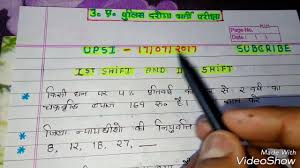 उ. प्र. पुलिस दरोगा भर्ती परीक्षा
PLUS
Page No.
Date
UPSI - 17/07/2017 SUBCRIBE
IST SHIFT AND II SHIFT
किसी धन पर 4% वार्षिक से 2 वर्ष का
चक्रवृद्धि ब्याज 164 रु. है।
जिला न्यायाधीशों की नियुक्ति
8, 12, 18, 27, ------ ?
Made With
VivaVideo